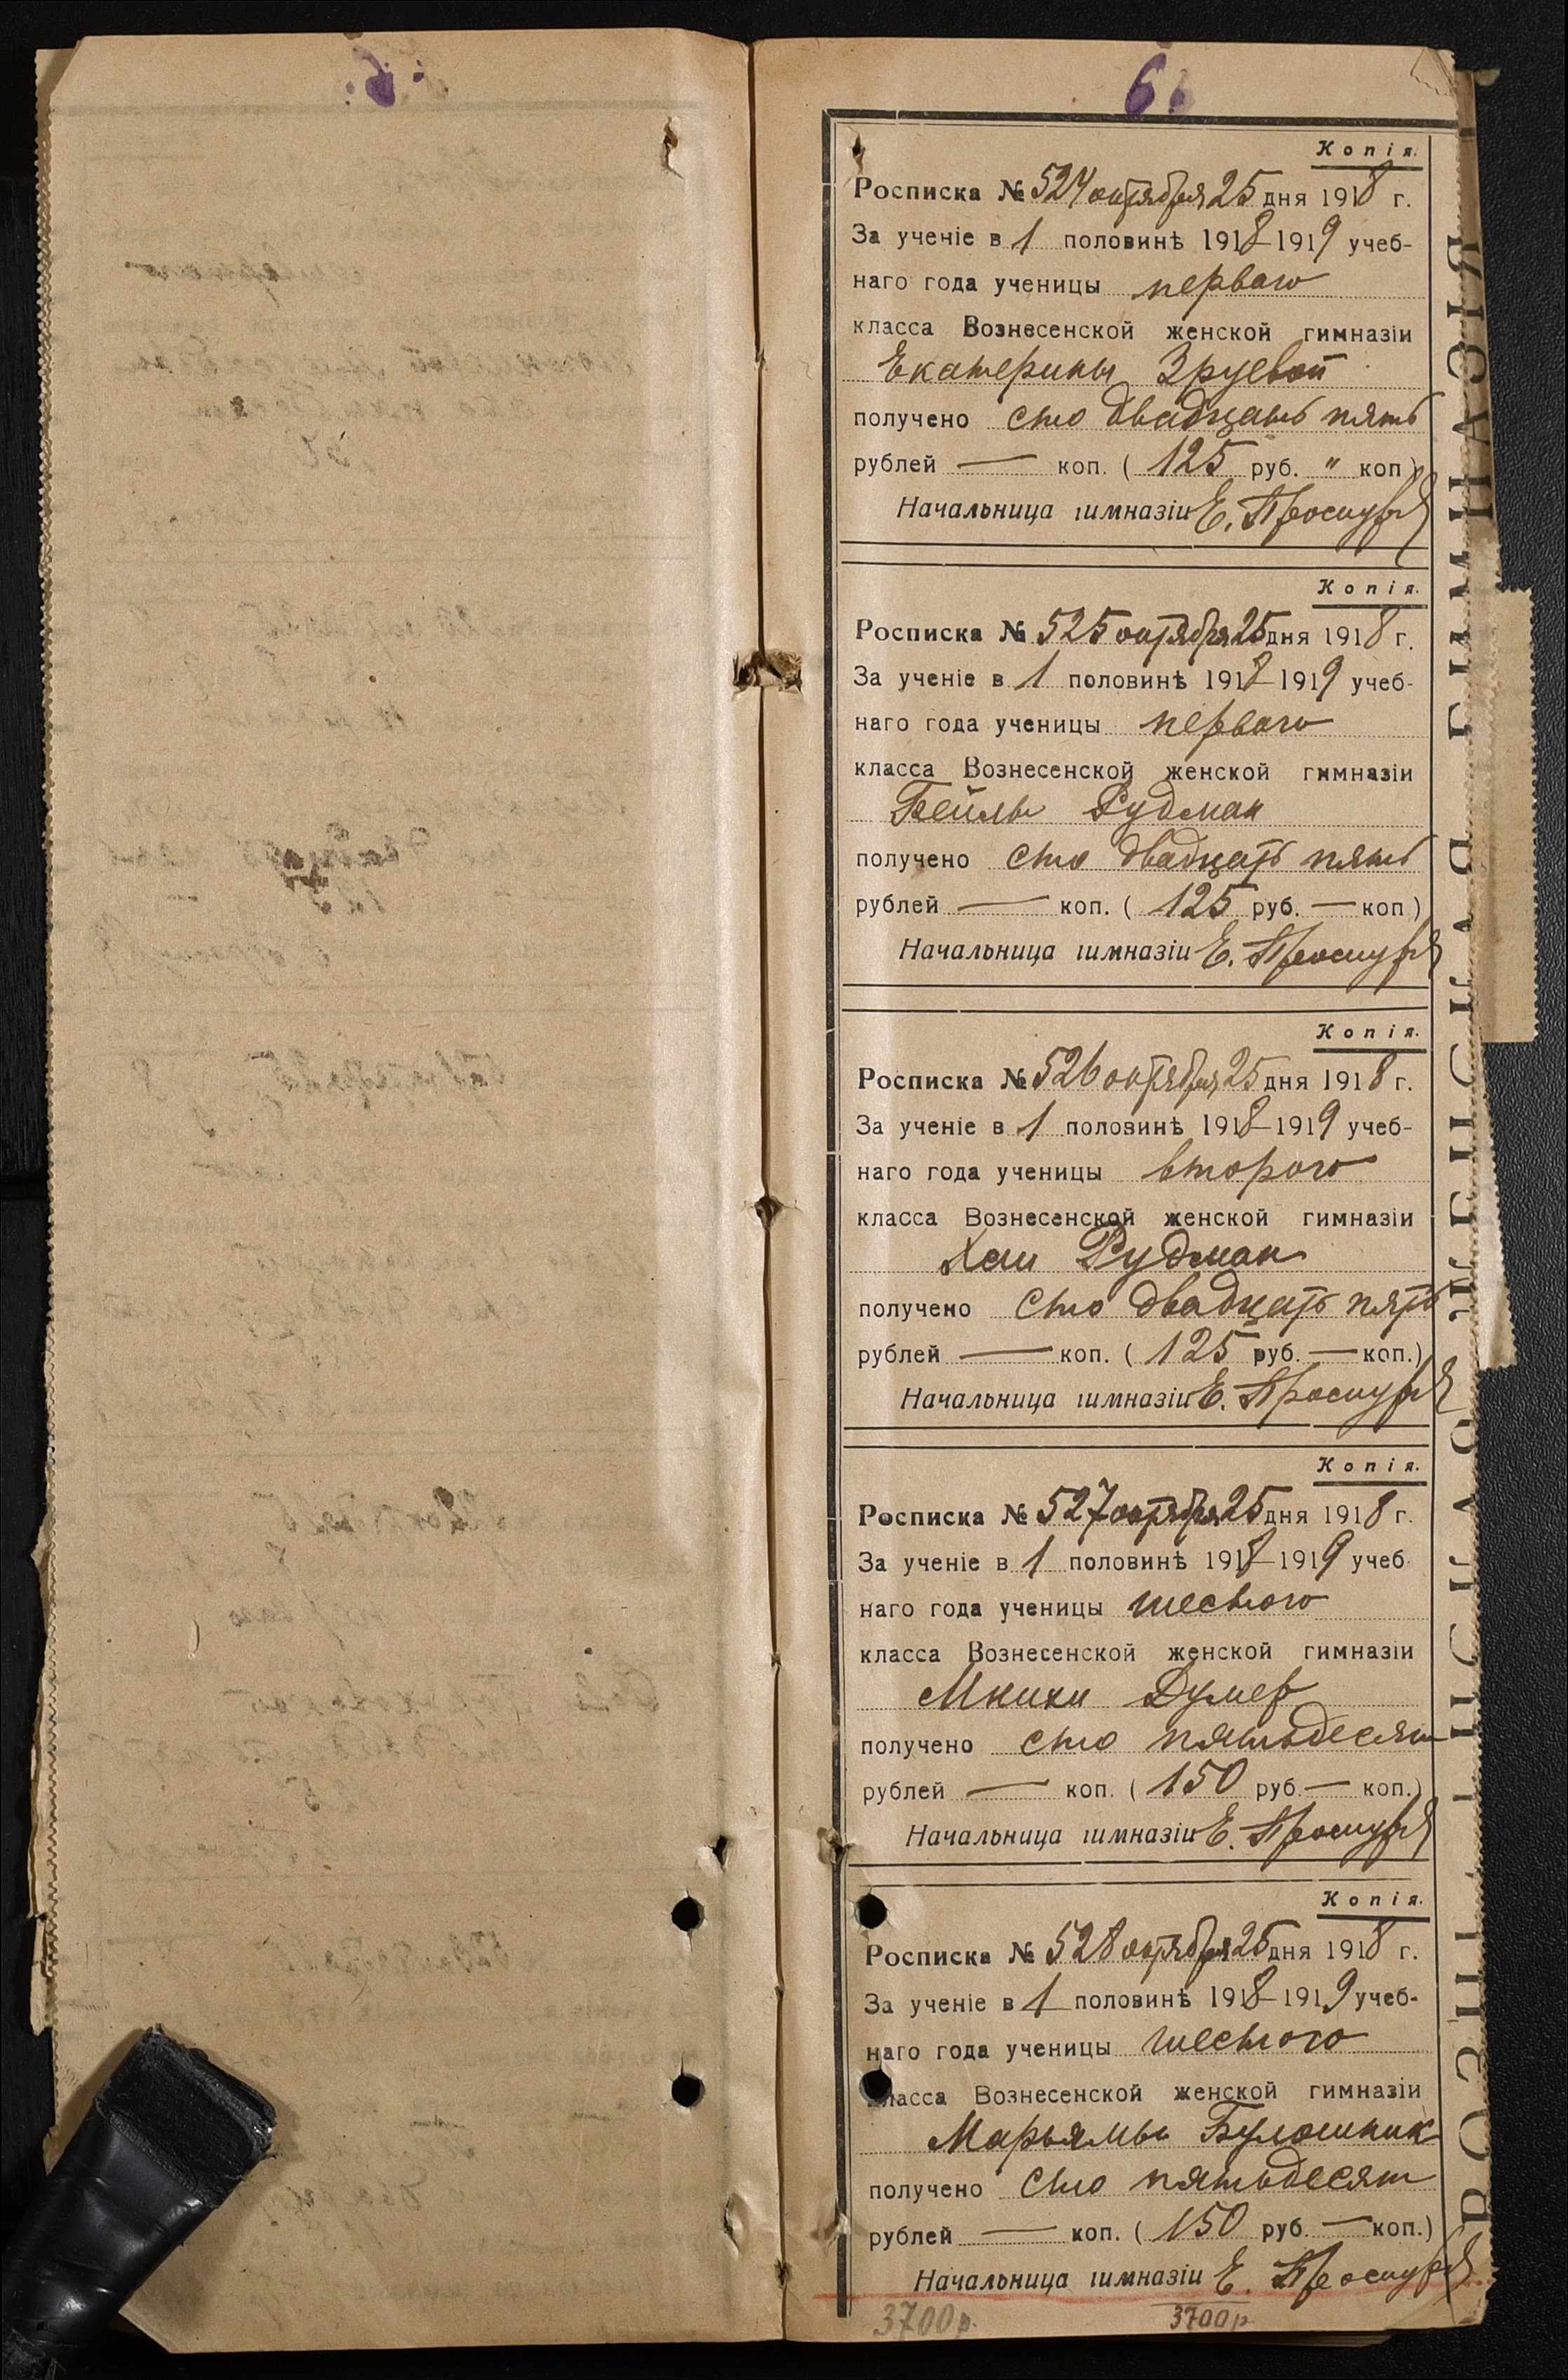 6
Копія.
Росписка № 524 октября 25 дня 1918 г.
За ученіе в 1 половинѣ 1918–1919 учеб-
наго года ученицы перваго
класса Вознесенской женской гимназіи
Екатерины Зруевой
получено сто двадцать пять
рублей — коп. ( 125 руб. " коп )
Начальница гимназіи Е.
Копія.
Росписка № 525 октября 25 дня 1918 г.
За ученіе в 1 половинѣ 1918–1919 учеб-
наго года ученицы перваго
класса Вознесенской женской гимназіи
Бейлы Рудман
получено сто двадцать пять
рублей — коп. ( 125 руб. — коп )
Начальница гимназіи Е.
Копія.
Росписка № 526 октября 25 дня 1918 г.
За ученіе в 1 половинѣ 1918–1919 учеб-
наго года ученицы второго
класса Вознесенской женской гимназіи
Хаи Рудман
получено сто двадцать пять
рублей — коп. ( 125 руб. — коп.)
Начальница гимназіи Е.
Копія.
Росписка № 527 октября 25 дня 1918 г.
За ученіе в 1 половинѣ 1918–1919 учеб
наго года ученицы шестого
класса Вознесенской женской гимназіи
получено сто пятьдесят
рублей — коп. ( 150 руб — коп.)
Начальница гимназіи Е.
Копія.
Росписка № 528 октября 25 дня 1918 г.
За ученіе в 1 половинѣ 1918–1919 учеб-
наго года ученицы шестого
класса Вознесенской женской гимназіи
Марьямы Булошник
получено сто пятьдесят
рублей — коп. ( 150 руб. — коп.)
Начальница гимназіи Е.
3700р. 3700р